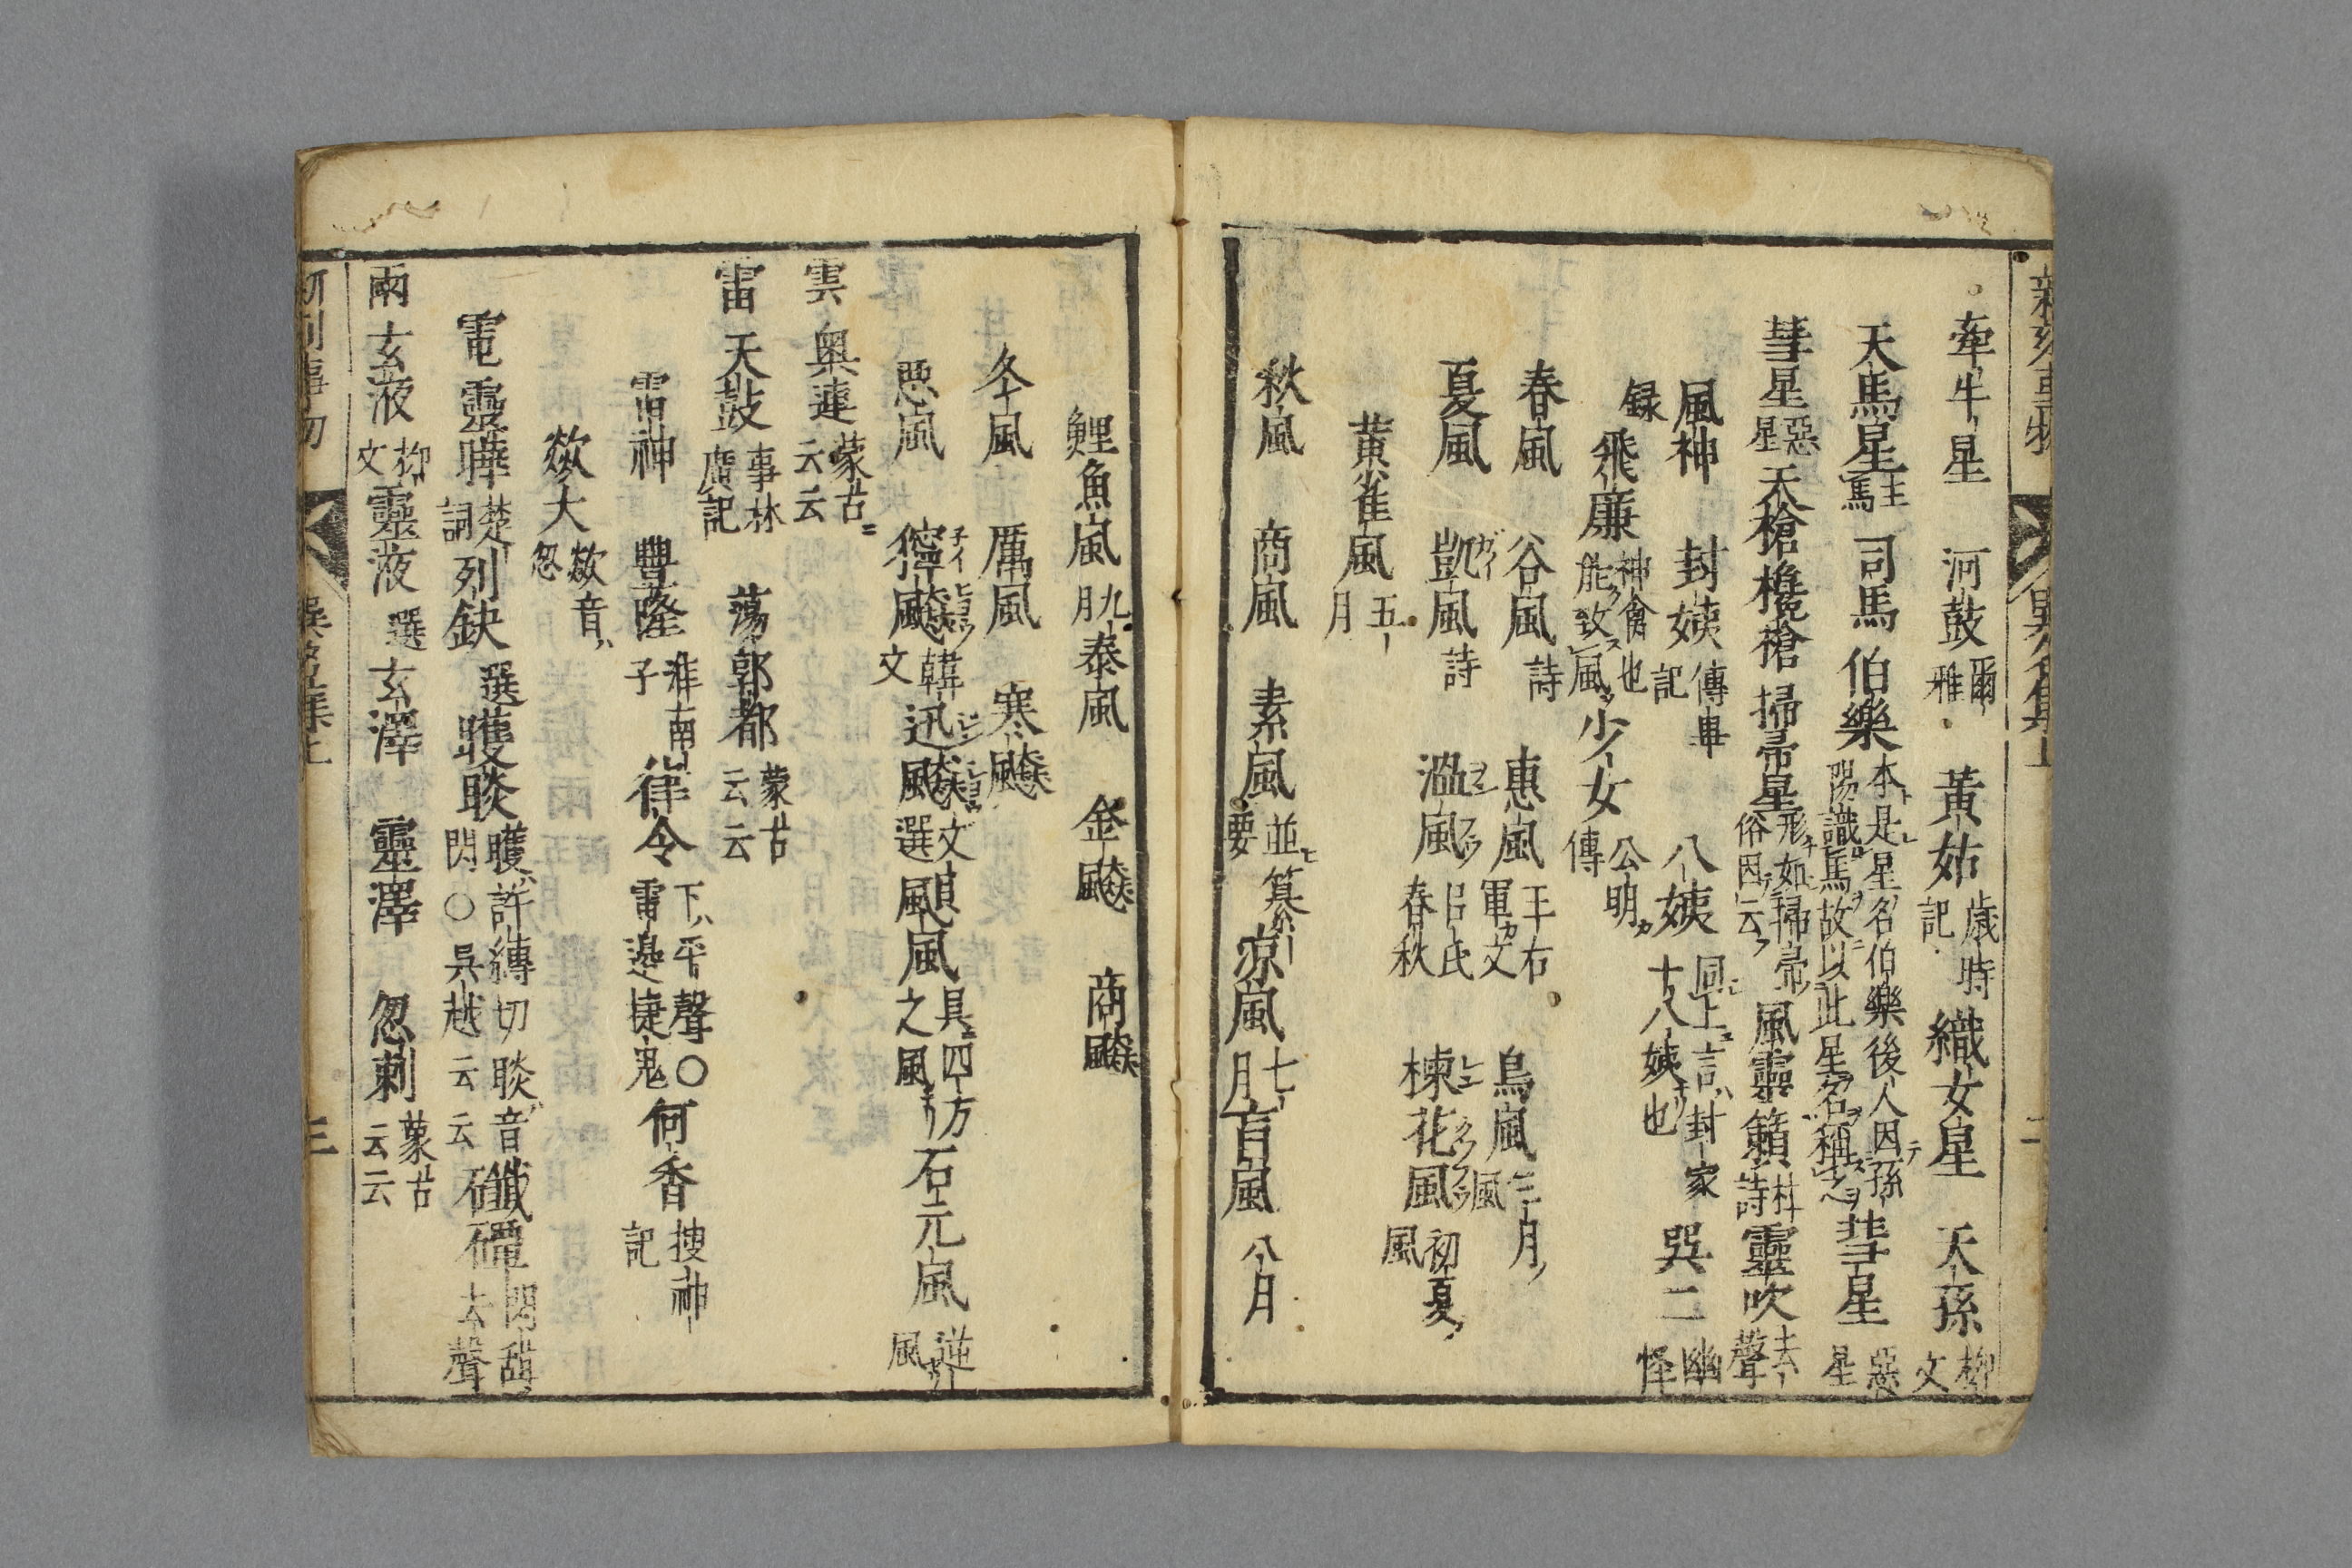 牽牛星 河鼓 爾雅 黃姑 歳時記 織女星 天孫 柳文
天馬星 王馬 司馬 伯樂 本是星名伯樂後人因孫陽識馬故以此星名稱之 彗星 惡星
彗星 惡星 天槍欃槍 掃帚星 形如掃帚俗因云 風靈籟 杜詩 靈吹 去聲
風神 封姨 傳記 八姨 同上言封家十八姨也 巽二 幽怪
録 飛廉 神禽也能致風 少女 公明傳
春風 谷風 詩 惠風 王右軍文 鳥風 三月風
夏風 凱風 詩 溫風 呂氏春秋 楝花風 初夏風
黃雀風 五月
秋風 商風 素風 並纂要 凉風 七月 盲風 八月
鯉魚風 九月 泰風 金飈 商飈
冬風 厲風 寒飈
悪風 獰飈 韓文 迅飈 文選 颶風 具四方之風 石尤風 逆風
雲 奥連 蒙古云云
雷 天鼓 事林廣記 蕩郭都 蒙古云云
雷神 豐隆 淮南子 律令 下平聲〇雷邊捷鬼 何香 搜神記
歘大 歘音忽
電 靈曄 楚詞 列缺 選 矆睒 矆許縛切睒音閃〇吳越云云 礥磹 閃䑙去聲
雨 玄液 柳文 靈液 選 玄澤 靈澤 忽剌 蒙古云云
三